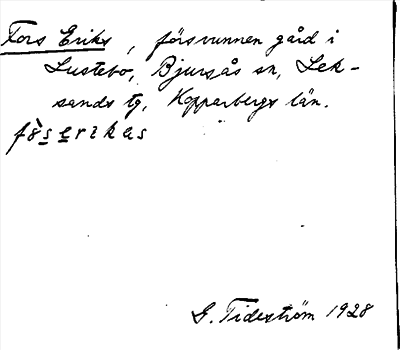 Fors Eriks, försvunnen gård i
Lustebo, Bjursås sn, Lek-
sands tg, Kopparbergs län.
fò̀serikas
G. Tideström 1928